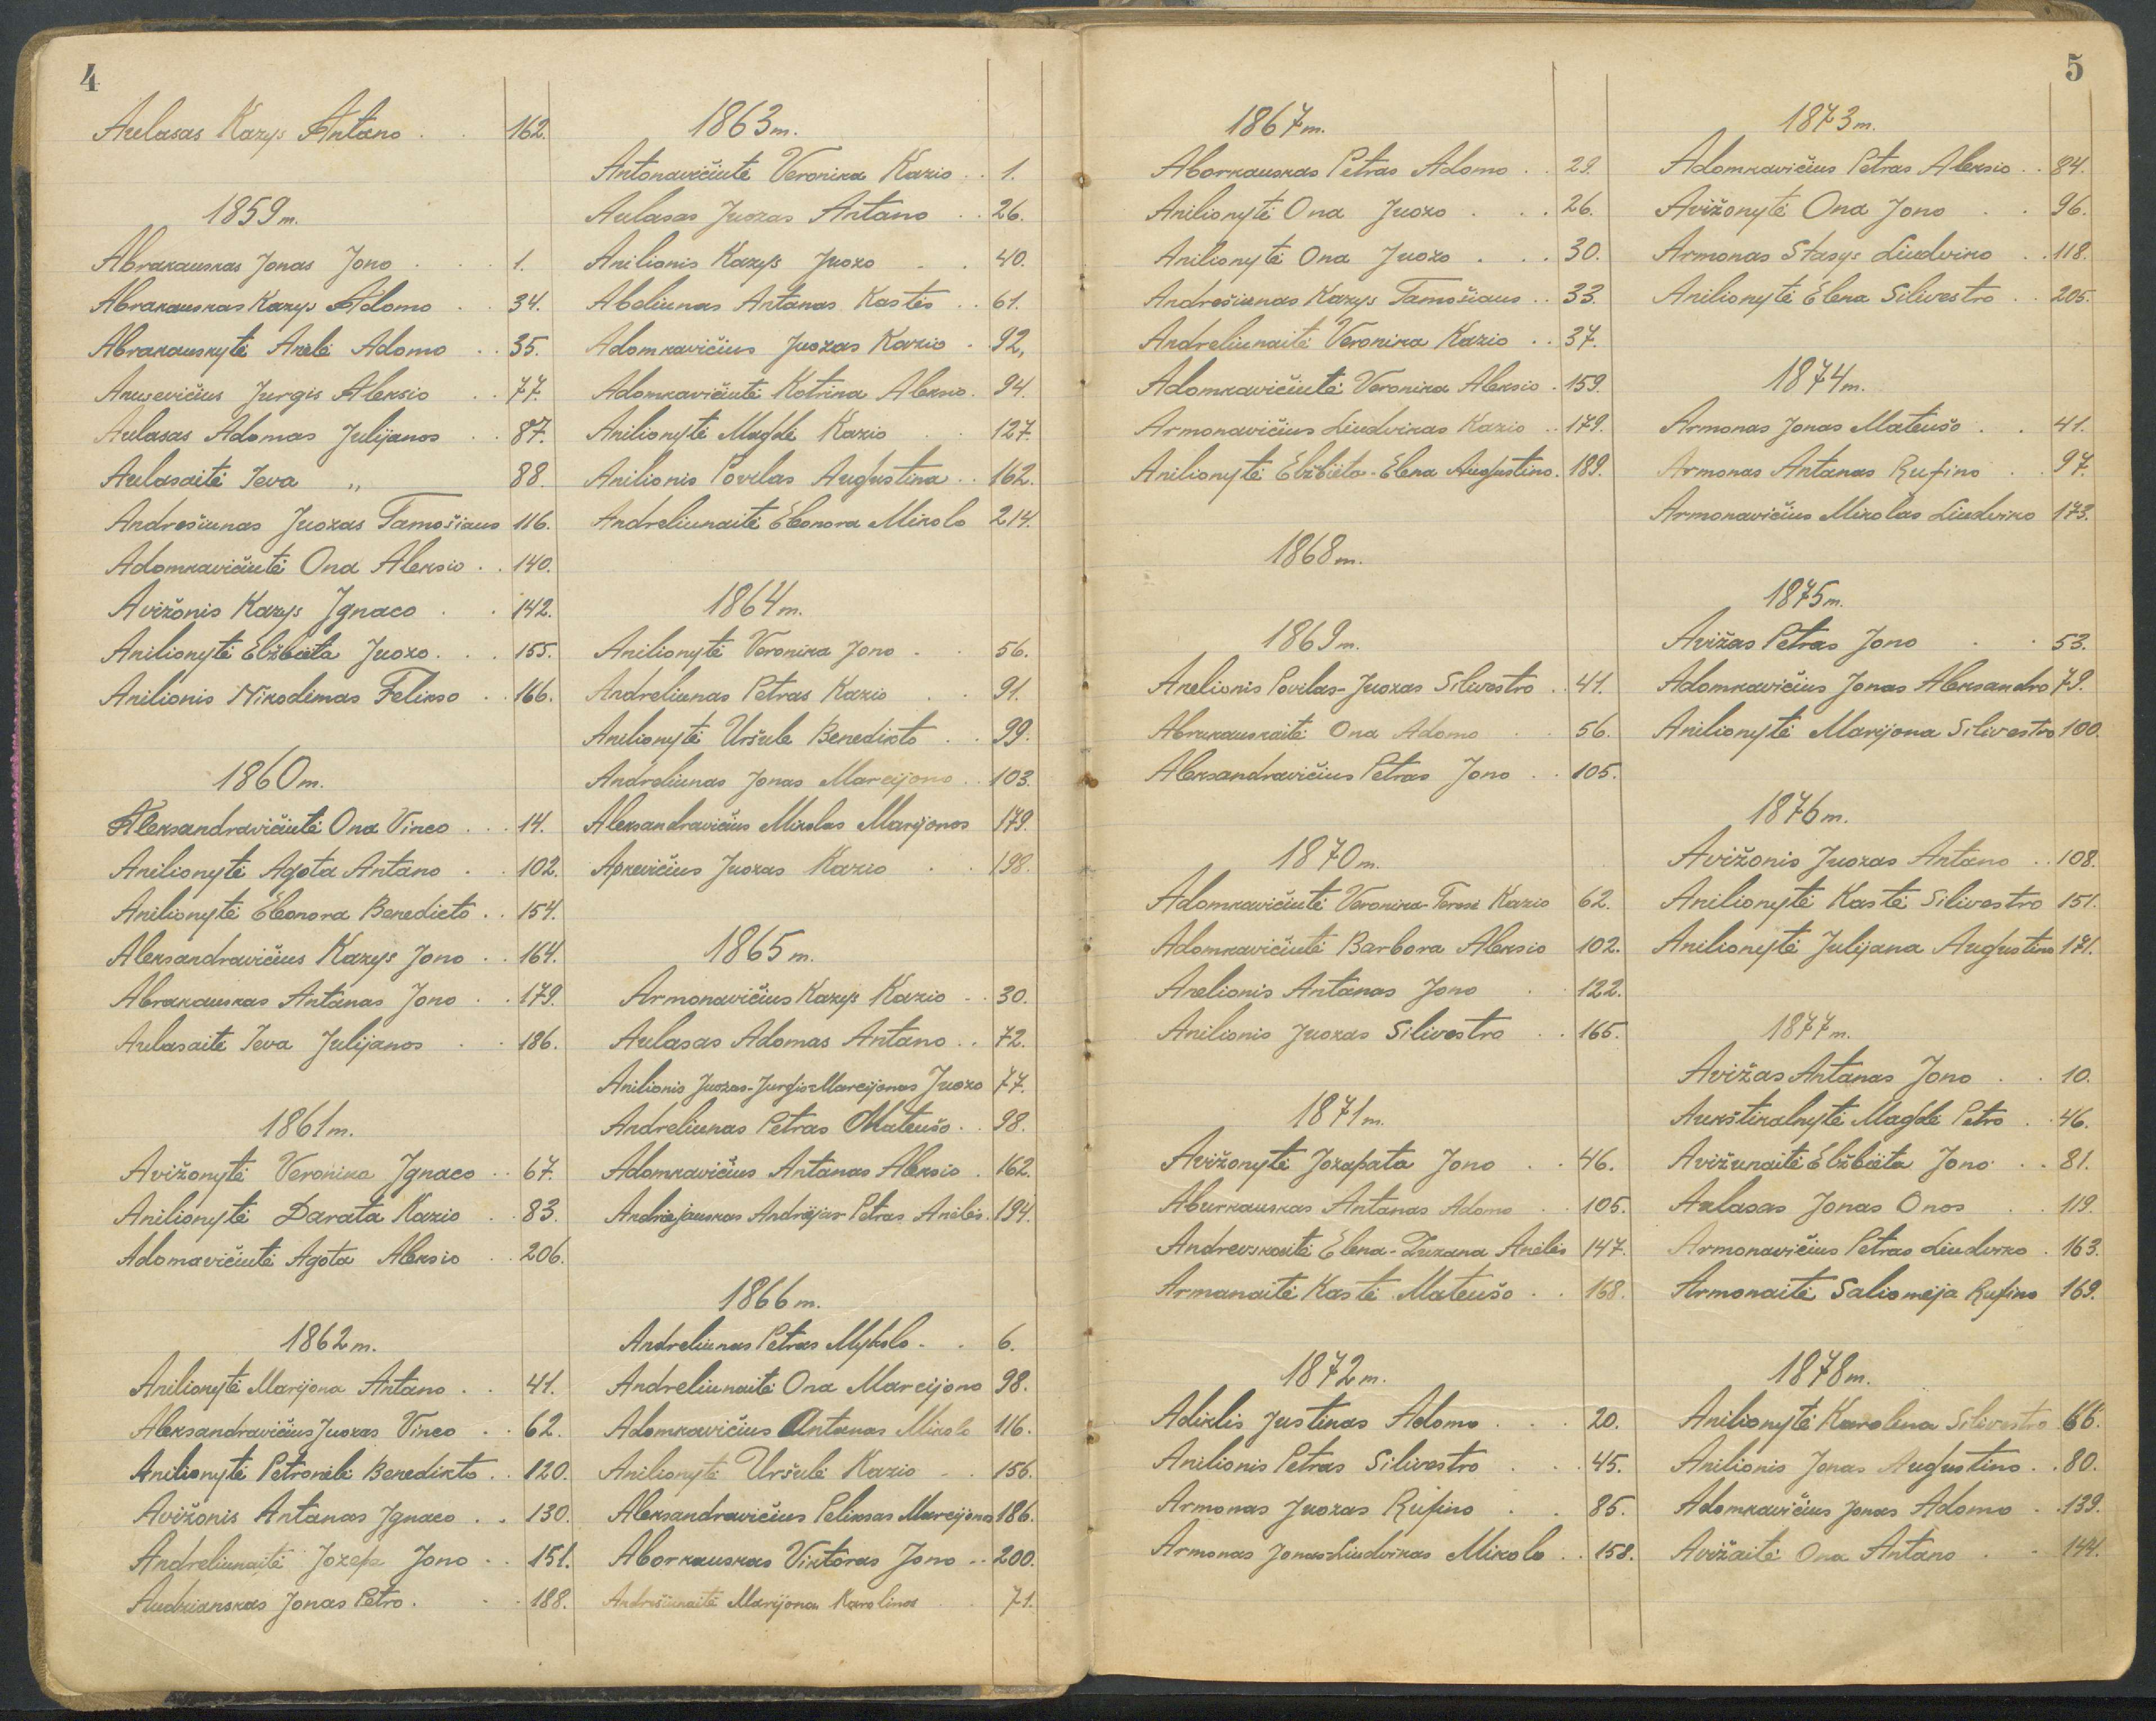 4
Aulasas Kazys Antano . . 162.
1859 m.
Abrakauskas Jonas Jono . . . 1.
Abrakauskas Kazys Adomo . . 34.
Abrakauskytė Anelė Adomo . . 35.
Anusevičius Jurgis Aleksio . . 77.
Aulasas Adomas Julijonos . . 87.
Aulasaitė Ieva „ 88.
Andrešiunas Juozas Tamošiaus 116.
Adomkavičiutė Ona Aleksio . . 140.
Avižonis Kazys Ignaco . . 142.
Anilionytė Elžbieta Juozo . . . 155.
Anilionis Nikodemas Felikso . . 166.
1860 m.
Aleksandravičiutė Ona Vinco . . . 14.
Anilionytė Agota Antano . . 102.
Anilionytė Eleonora Benedicto . . 154.
Aleksandravičius Kazys Jono . . 164.
Abrakauskas Antanas Jono . . 179.
Aulasaitė Ieva Julijonos . . 186.
1861 m.
Avižonytė Veronika Ignaco . . 67.
Anilionytė Darata Kazio . . 83.
Adomavičiutė Agota Aleksio . . 206.
1862 m.
Anilionytė Marijona Antano . . 41.
Aleksandravičius Juozas Vinco . . 62.
Anilionytė Petronėlė Benedikto . . 120.
Avižonis Antanas Ignaco . . 130.
Andreliunaitė Jozefa Jono . . 151.
Audzianskas Jonas Petro . . . 188.
1863 m.
Antonavičiutė Veronika Kazio . . 1.
Aulasas Juozas Antano . . 26.
Anilionis Kazys Juozo . . 40.
Abeliunas Antanas Kastės . . 61.
Adomkavičius Juozas Kazio . 92,
Adomkavičiutė Kotrina Aleksio . 94.
Anilionytė Magdė Kazio . . 127.
Anilionis Povilas Augustina . . 162.
Andreliunaitė Eleonora Mikolo 214.
1864 m.
Anilionytė Veronika Jono . . 56.
Andreliunas Petras Kazio . . 91.
Anilionytė Uršulė Benedikto . . 99.
Andreliunas Jonas Marcijono . . 103.
Aleksandravičius Mikolas Marijonos 179.
Apkevičius Juozas Kazio . . 198.
1865 m.
Armonavičius Kazys Kazio . . 30.
Aulasas Adomas Antano . . 72.
Anilionis Juozas-Jurgis-Marcijonas Juozo 77.
Andreliunas Petras Mateušo . . 98.
Adomkavičius Antanas Aleksio . 162.
Andriejauskas Andriejus-Petras Anelės . 194.
1866 m.
Andreliunas Petras Mykolo . . 6.
Andreliunaitė Ona Marcijono 98.
Adomkavičius Antanas Mikolo 116.
Anilionytė Uršulė Kazio . . 156.
Aleksandravičius Feliksas Marcijono 186.
Aborkauskas Viktoras Jono . . 200.
Andrešiunaitė Marijona Karolinos . . 71.
5
1867 m.
Aborkauskas Petras Adomo . . 29.
Anilionytė Ona Juozo . . . 26.
Anilionytė Ona Juozo . . . 30.
Andrešiunas Kazys Tamošiaus . . 33.
Andreliunaitė Veronika Kazio . . 37.
Adomkavičiutė Veronika Aleksio . 159.
Armonavičius Liudvikas Kazio . . 179.
Anilionytė Elžbieta-Elena Augustino . 189.
1868 m.
1869 m.
Anelionis Povilas-Juozas Silvestro . . 41.
Abrakauskaitė Ona Adomo . . 56.
Aleksandravičius Petras Jono . . 105.
1870 m.
Adomkavičiutė Veronika-Teresė Kazio 62.
Adomkavičiutė Barbora Aleksio 102.
Anelionis Antanas Jono . . 122.
Anilionis Juozas Silivestro . . 165.
1871 m.
Avižonytė Jozapata Jono . . 46.
Aburkauskas Antanas Adomo . . 105.
Andrevskaitė Elena-Zuzana Anelės 147.
Armanaitė Kastė Mateušo . . 168.
1872 m.
Adiklis Justinas Adomo . . . 20.
Anilionis Petras Silivestro . . . 45.
Armonas Juozas Rufino . . 85.
Armonas Jonas-Liudvikas Mikolo . . 158.
1873 m.
Adomkavičius Petras Aleksio . . 84.
Avižonytė Ona Jono . . 96.
Armonas Stasys Liudviko . . 118.
Anilionytė Elena Silivestro . . 205.
1874 m.
Armonas Jonas Mateušo . . 41.
Armonas Antanas Rufino . . 97.
Armonavičius Mikolas Liudviko 173.
1875 m.
Avižas Petras Jono . . 53.
Adomkavičius Jonas Aleksandro 79.
Anilionytė Marijona Silivestro 100.
1876 m.
Avižonis Juozas Antano . . 108.
Anilionytė Kastė Silivestro 151.
Anilionytė Julijana Augustino 171.
1877 m.
Avižas Antanas Jono . . 10.
Aukštikalnytė Magdė Petro . . 46.
Avižunaitė Elžbieta Jono . . 81.
Aulasas Jonas Onos . . 119.
Armonavičius Petras Liudviko . 163.
Armonaitė Saliomėja Rufino 169.
1878 m.
Anilionytė Karolina Silivestro 66.
Anilionis Jonas Augustino . . 80.
Adomkavičius Jonas Adomo . . 139.
Avižaitė Ona Antano . . 144.